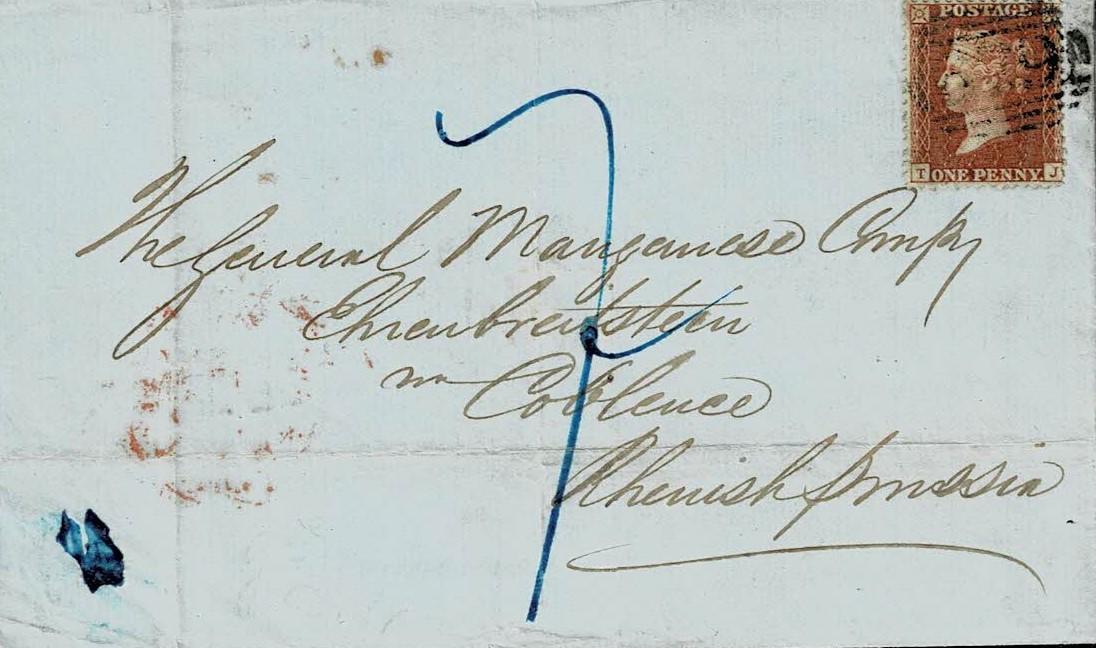 POSTAGE
T ONE PENNY. J
7
The General Manganese Compy
Ehrenbreitstein
nr Coblence
Rhenish Prussia